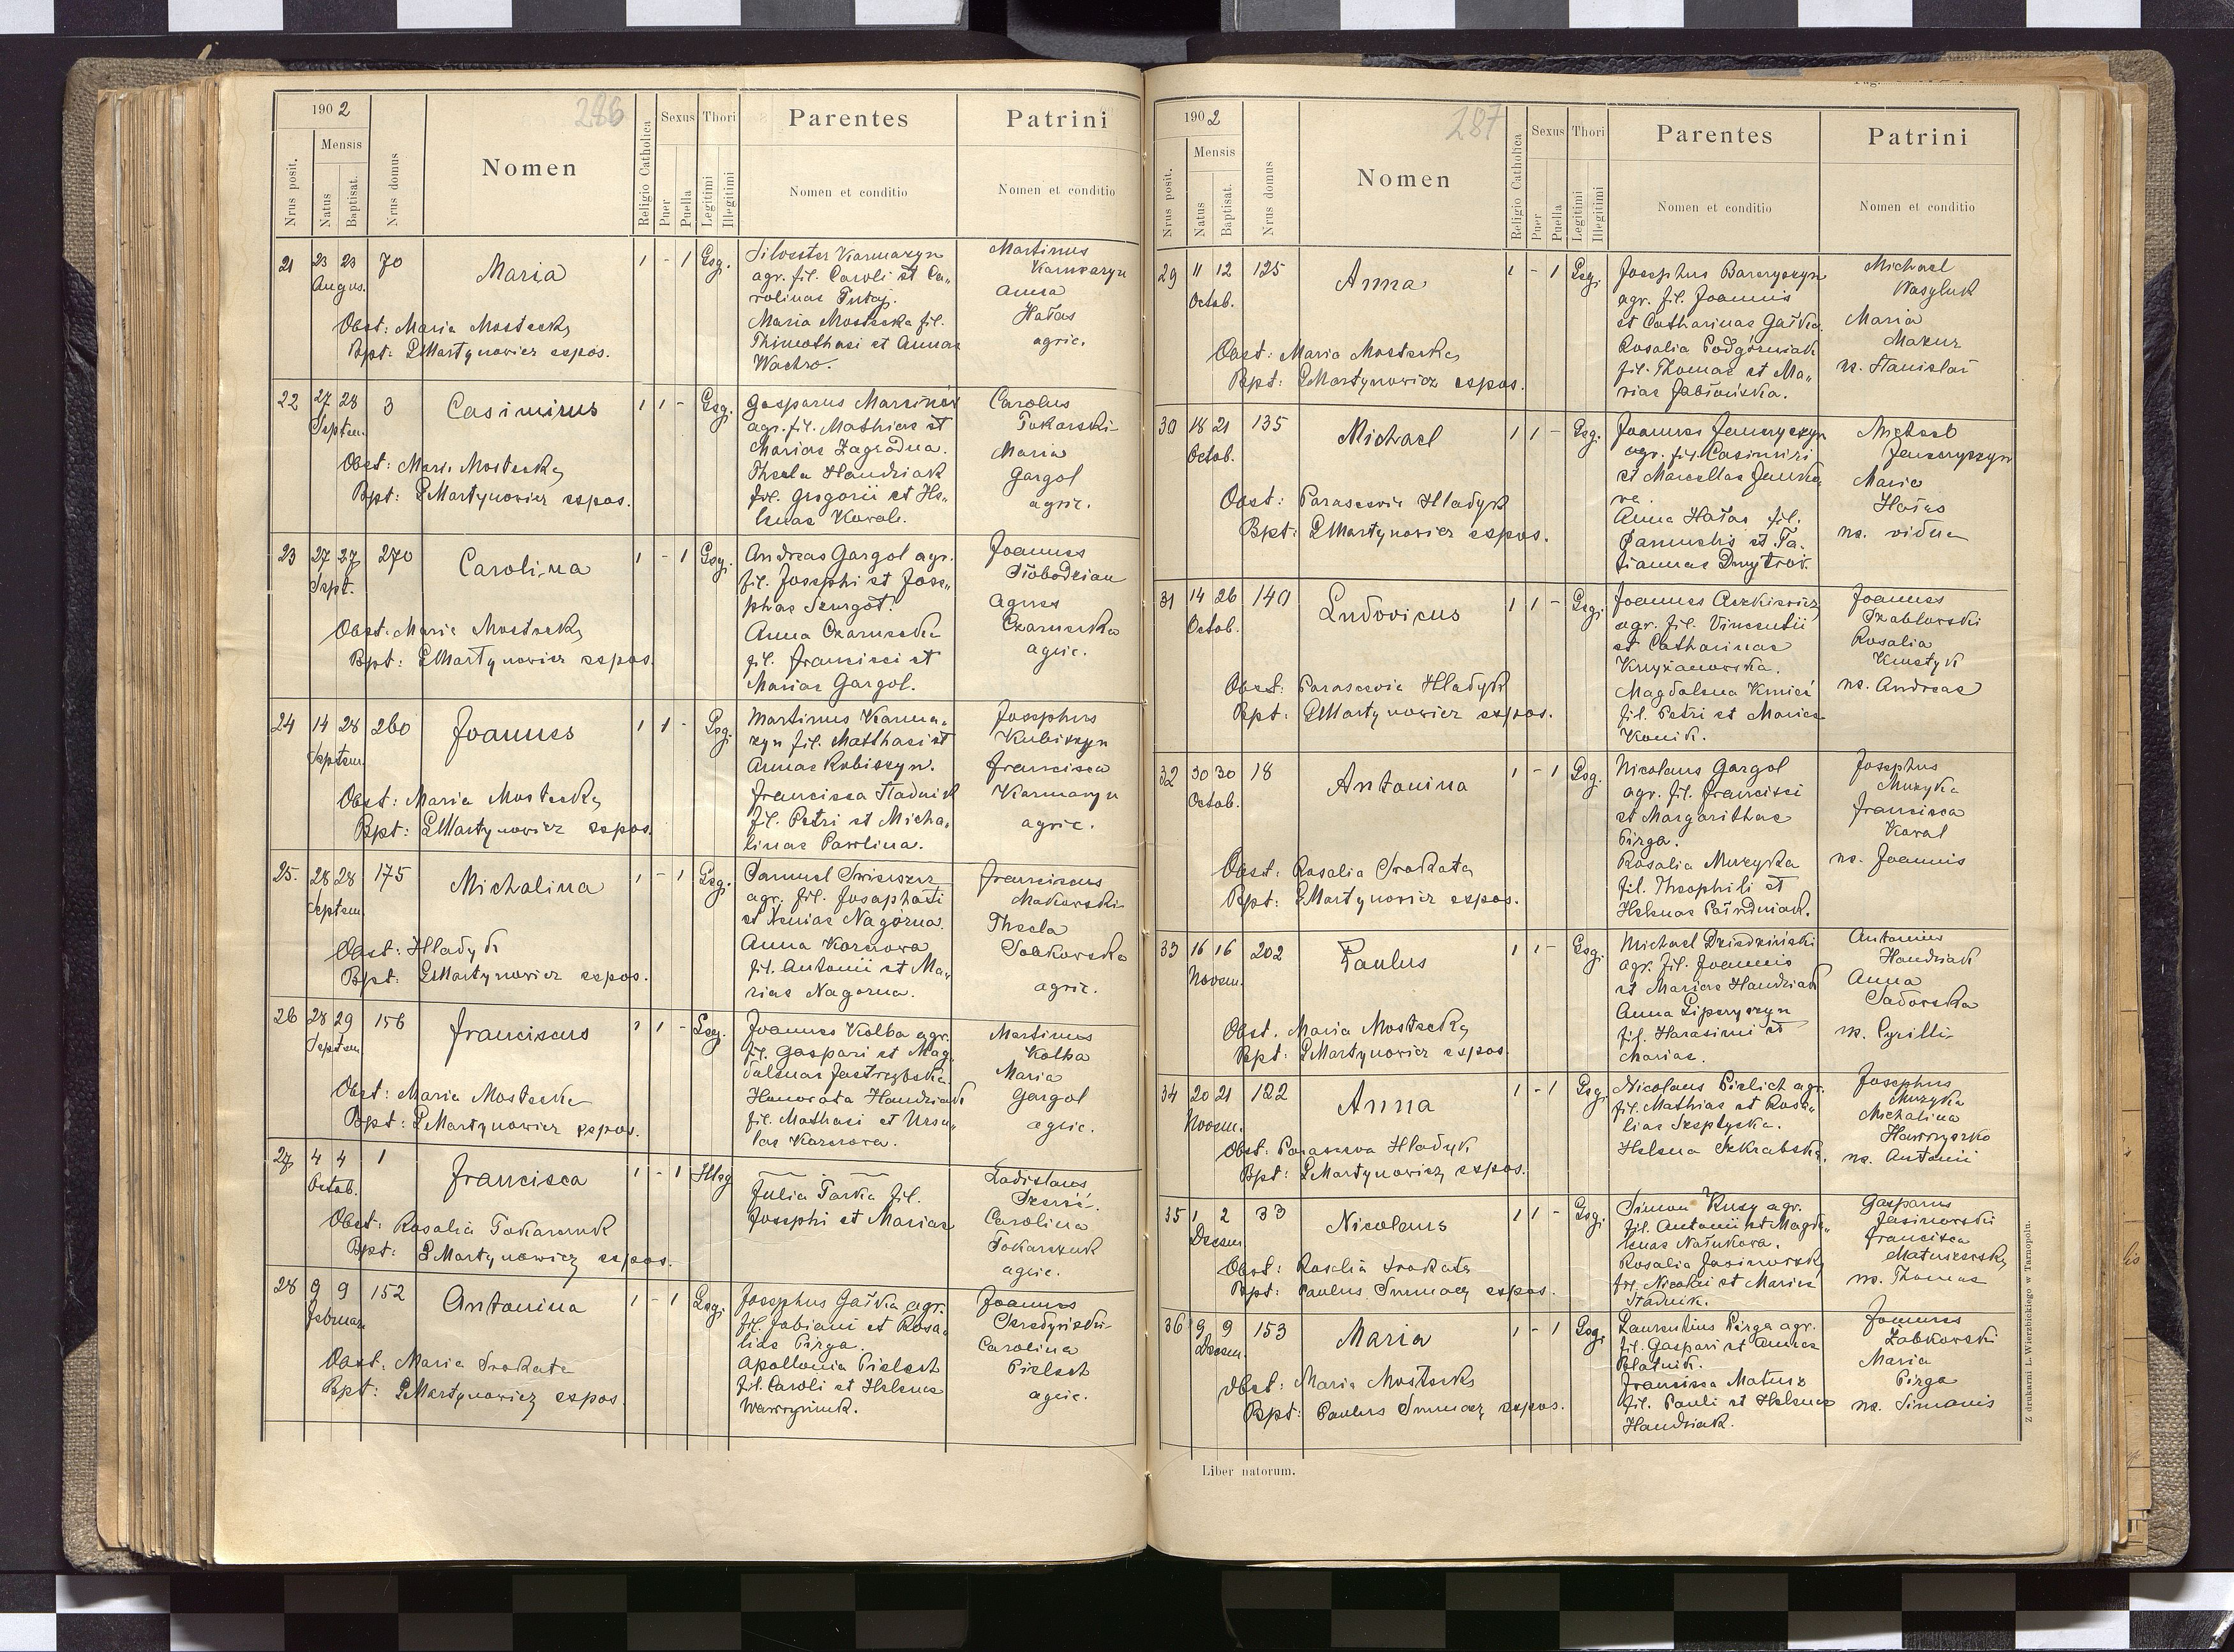 1902
286
Mensis
Nrus posit.
Natus
Baptisat.
Nrus domus
Nomen
Religio Catholica
Sexus
Puer
Puella
Thori
Legitimi
Illegitimi
Parentes
Nomen et conditio
Patrini
Nomen et conditio
21 23 23 70 Maria 1 - 1 Leg.
Augus.
Obst: Maria Mostecka
Bpt: LMartynowicz expos.
Silvester Karmazyn
agr. fil. Caroli et Ca„
rolinae Putaj.
Maria Mostecka fil.
Thimothaei et Annae
Wachro.
Martinus
Karmazyn
Anna
Hałas
agric.
22 27 28 3 Casimirus 1 1 - Leg.
Septem.
Obst: Maria Mostecka
Bpt: LMartynowicz expos.
Gasparus Marcinów
agr. fil. Mathiae et
Mariae Zagrodna.
Thecla Handziak
fil. Gregorii et He„
lenae Kowal.
Carolus
Tokarski
Maria
Gargol
agric.
23 27 27 270 Carolina 1 - 1 Leg.
Sept.
Obst: Maria Mostecka
Bpt: LMartynowicz expos.
Andreas Gargol agr.
fil. Josephi et Jose„
phae Szurgot.
Anna Czarnecka
fil. Francisci et
Mariae Gargol.
Joannes
Słobodzian
Agnes
Czarnecka
agric.
24 14 28 260 Joannes 1 1 - Leg.
Septem.
Obst: Maria Mostecka
Bpt: LMartynowicz expos.
Martinus Karma„
zyn fil. Matthaei et
Annae Kubiszyn.
Francisca Stadnik
fil. Petri et Micha„
linae Pawlina.
Josephus
Kubiszyn
Francisca
Karmazyn
agric.
25. 28 28 175 Michalina 1 - 1 Leg.
Septem.
Obst: Hladyk
Bpt: LMartynowicz expos.
Samuel Swiszcz
agr. fil. Josaphati
et Xeniae Nagórna.
Anna Korczowa
fil. Antonii et Ma„
riae Nagorna.
Franciscus
Makowski
Thecla
Sobkowska
agric.
26 28 29 156 Franciscus 1 1 - Leg.
Septem
Obst: Maria Mostecka
Bpt: LMartynowicz expos.
Joannes Kolba agr.
fil. Gaspari et Mag„
dalenae Jastrzębska.
Honorata Handziak
fil. Mathaei et Ursu„
lae Karczowa.
Martinus
Kolba
Maria
Gargol
agric.
27 4 4 1 Francisca 1 - 1 Illeg
Octob.
Obst: Rosalia Tokarczuk
Bpt: LMartynowicz expos.
Julia Tarka fil.
Josephi et Mariae
Ladislaus
Carolina
Tokarczuk
agric.
28 9 9 152 Antonina 1 - 1 Leg.
Februar
Obst: Maria Srokata
Bpt: LMartynowicz expos.
Josephus Gałka agr.
fil. Fabiani et Rosa„
liae Pirga.
Apollonia Pielech
fil. Caroli et Helenae
Wawryniuk.
Joannes
Carolina
Pielech
agric.
1902
287
Mensis
Nrus posit.
Natus
Baptisat.
Nrus domus
Nomen
Religio Catholica
Sexus
Puer
Puella
Thori
Legitimi
Illegitimi
Parentes
Nomen et conditio
Patrini
Nomen et conditio
29 11 12 125 Anna 1 - 1 Leg.
Octob.
Obst: Maria Mostecka
Bpt: LMartynowicz expos.
Josephus Barczyszyn
agr. fil. Joannis
et Catharinae Gałka.
Rosalia Podgórniak
fil. Thomae et Ma„
riae Jabłońska.
Michael
Wasyluk
Maria
Makur
ux. Stanislai
30 18 21 135 Michael 1 1 - Leg.
Octob.
Obst: Parascevia Hladyk
Bpt: LMartynowicz expos.
Joannes Jenczyszyn
agr. fil. Casimiri
et Marcellae Jenko
wa.
Anna Hałas fil.
Samuelis et Ta„
tiannae Dmytrów.
Michael
Jenczyszyn
Maria
Hałas
ux. vidua
31 14 26 140 Ludovicus 1 1 - Leg.
Octob.
Obst: Parascevia Hladyk
Bpt: LMartynowicz expos.
Joannes Aszkiewicz
agr. fil. Vincentii
et Catharinae
Krzyżanowska.
Magdalena Kmieć
fil. Petri et Mariae
Konik.
Joannes
Szablowski
Rosalia
Kmetyk
ux. Andreae
32 30 30 18 Antonina 1 - 1 Leg.
Octob.
Obst: Rosalia Srokata
Bpt: LMartynowicz expos.
Nicolaus Gargol
agr. fil. Francisci
et Margarithae
Pirga.
Rosalia Muzyka
fil. Theophili et
Helenae Południak.
Josephus
Muzyka
Francisca
Kowal
ux. Joannis
33 16 16 202 Paulus 1 1 - Leg.
Novem.
Obst. Maria Mostecka
Bpt: LMartynowicz expos.
Michael Dziedziński
agr. fil. Joannis
et Mariae Handziak
Anna Lipczyszyn
fil. Harasimi et
Mariae.
Antonius
Handziak
Anna
Sadowska
ux. Cyrilli
34 20 21 122 Anna 1 - 1 Leg.
Novem.
Obst: Parascewa Hladyk
Bpt: LMartynowicz expos.
Nicolaus Pielich agr.
fil. Mathiae et Rosa„
liae Szeptycka.
Helena Sekrabska.
Josephus
Muzyka
Michalina
Hawryszko
ux. Antonii
35 1 2 33 Nicolaus 1 1 - Leg.
Decem
Obst: Rosalia Srokata
Bpt: Paulus Smmacz expos.
Simon Kusy agr.
fil. Antonii et Magda„
lenae Natukowa.
Rosalia Jasinowska
fil. Nicolai et Mariae
Stadnik.
Gasparus
Jasinowski
Francisca
Matuszewska
ux. Thomae
36 9 9 153 Maria 1 - 1 Leg.
Decem.
Obst: Maria Mostecka
Bpt: Paulus Smmacz expos.
Laurentius Pirga agr.
fil. Gaspari et Annae
Blatnik.
Francisca Matusz
fil. Pauli et Helenae
Handziak.
Joannes
Zabkowski
Maria
Pirga
ux. Simonis
Liber natorum.
Z drukarni L. Wierzbickiego w Tarnopolu.